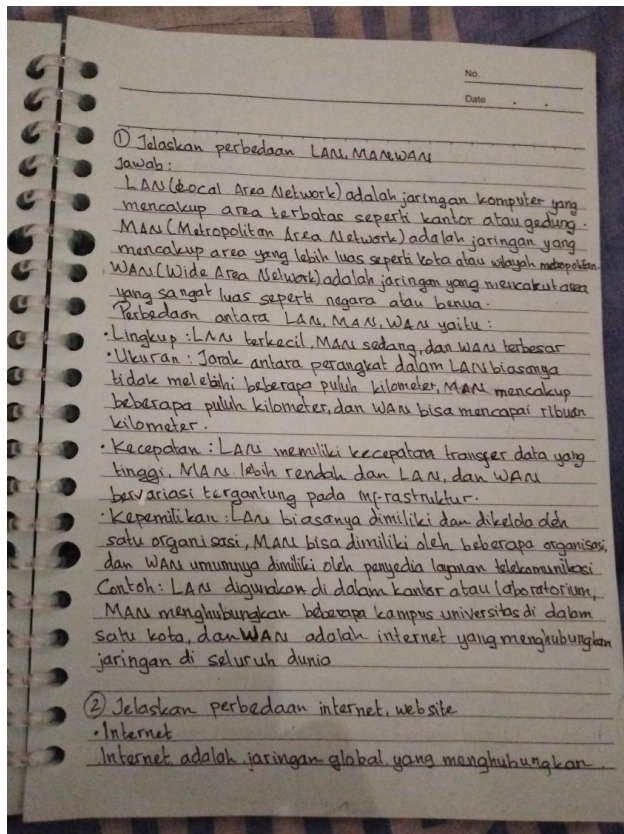 No.
Date
① Jelaskan perbedaan LAN, MAN, WAN
Jawab :
LAN (Local Area Network) adalah jaringan komputer yang
mencakup area terbatas seperti kantor atau gedung.
MAN (Metropolitan Area Network) adalah jaringan yang
mencakup area yang lebih luas seperti kota atau wilayah metropolitan.
WAN (Wide Area Network) adalah jaringan yang mencakut area
yang sangat luas seperti negara atau benua.
Perbedaan antara LAN, MAN, WAN yaitu :
• Lingkup : LAN terkecil, MAN sedang, dan WAN terbesar
• Ukuran : Jarak antara perangkat dalam LAN biasanya
tidak melebihi beberapa puluh kilometer, MAN mencakup
beberapa puluh kilometer, dan WAN bisa mencapai ribuan
kilometer.
• Kecepatan : LAN memiliki kecepatan transfer data yang
tinggi, MAN lebih rendah dan LAN, dan WAN
bervariasi tergantung pada inf-rastruktur.
• Kepemilikan : LAN biasanya dimiliki dan dikelola oleh
satu organisasi, MAN bisa dimiliki oleh beberapa organisasi,
dan WAN umumnya dimiliki oleh penyedia layanan telekomunikasi
Contoh : LAN digunakan di dalam kantor atau laboratorium,
MAN menghubungkan beberapa kampus universitas di dalam
satu kota, dan WAN adalah internet yang menghubungkan
jaringan di seluruh dunia
② Jelaskan perbedaan internet, website
• Internet
Internet adalah jaringan global yang menghubungkan